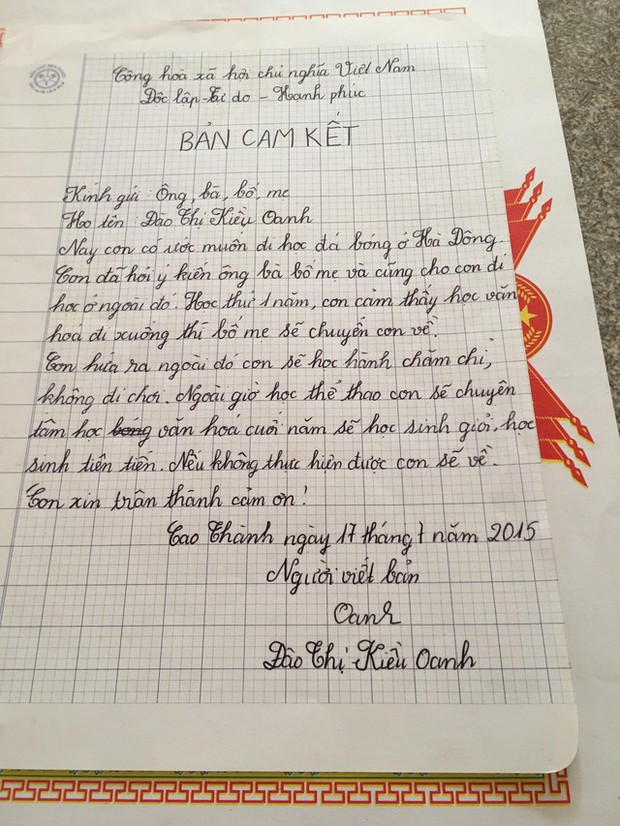 Cộng hoà xã hội chủ nghĩa Việt Nam
Độc lập - Tự do - Hạnh phúc
BẢN CAM KẾT
Kính gửi: Ông, bà, bố, mẹ
Họ tên: Đào Thị Kiều Oanh
Nay con có ước muốn đi học đá bóng ở Hà Đông.
Con đã hỏi ý kiến ông bà bố mẹ và cũng cho con đi
học ở ngoài đó. Học thử 1 năm, con cảm thấy học văn
hoá đi xuống thì bố mẹ sẽ chuyển con về.
Con hứa ra ngoài đó con sẽ học hành chăm chỉ,
không đi chơi. Ngoài giờ học thể thao con sẽ chuyên
tâm học bóng văn hoá cuối năm sẽ học sinh giỏi, học
sinh tiên tiến. Nếu không thực hiện được con sẽ về.
Con xin trân thành cảm ơn!
Cao Thành ngày 17 tháng 7 năm 2015
Người viết bản
Oanh
Đào Thị Kiều Oanh